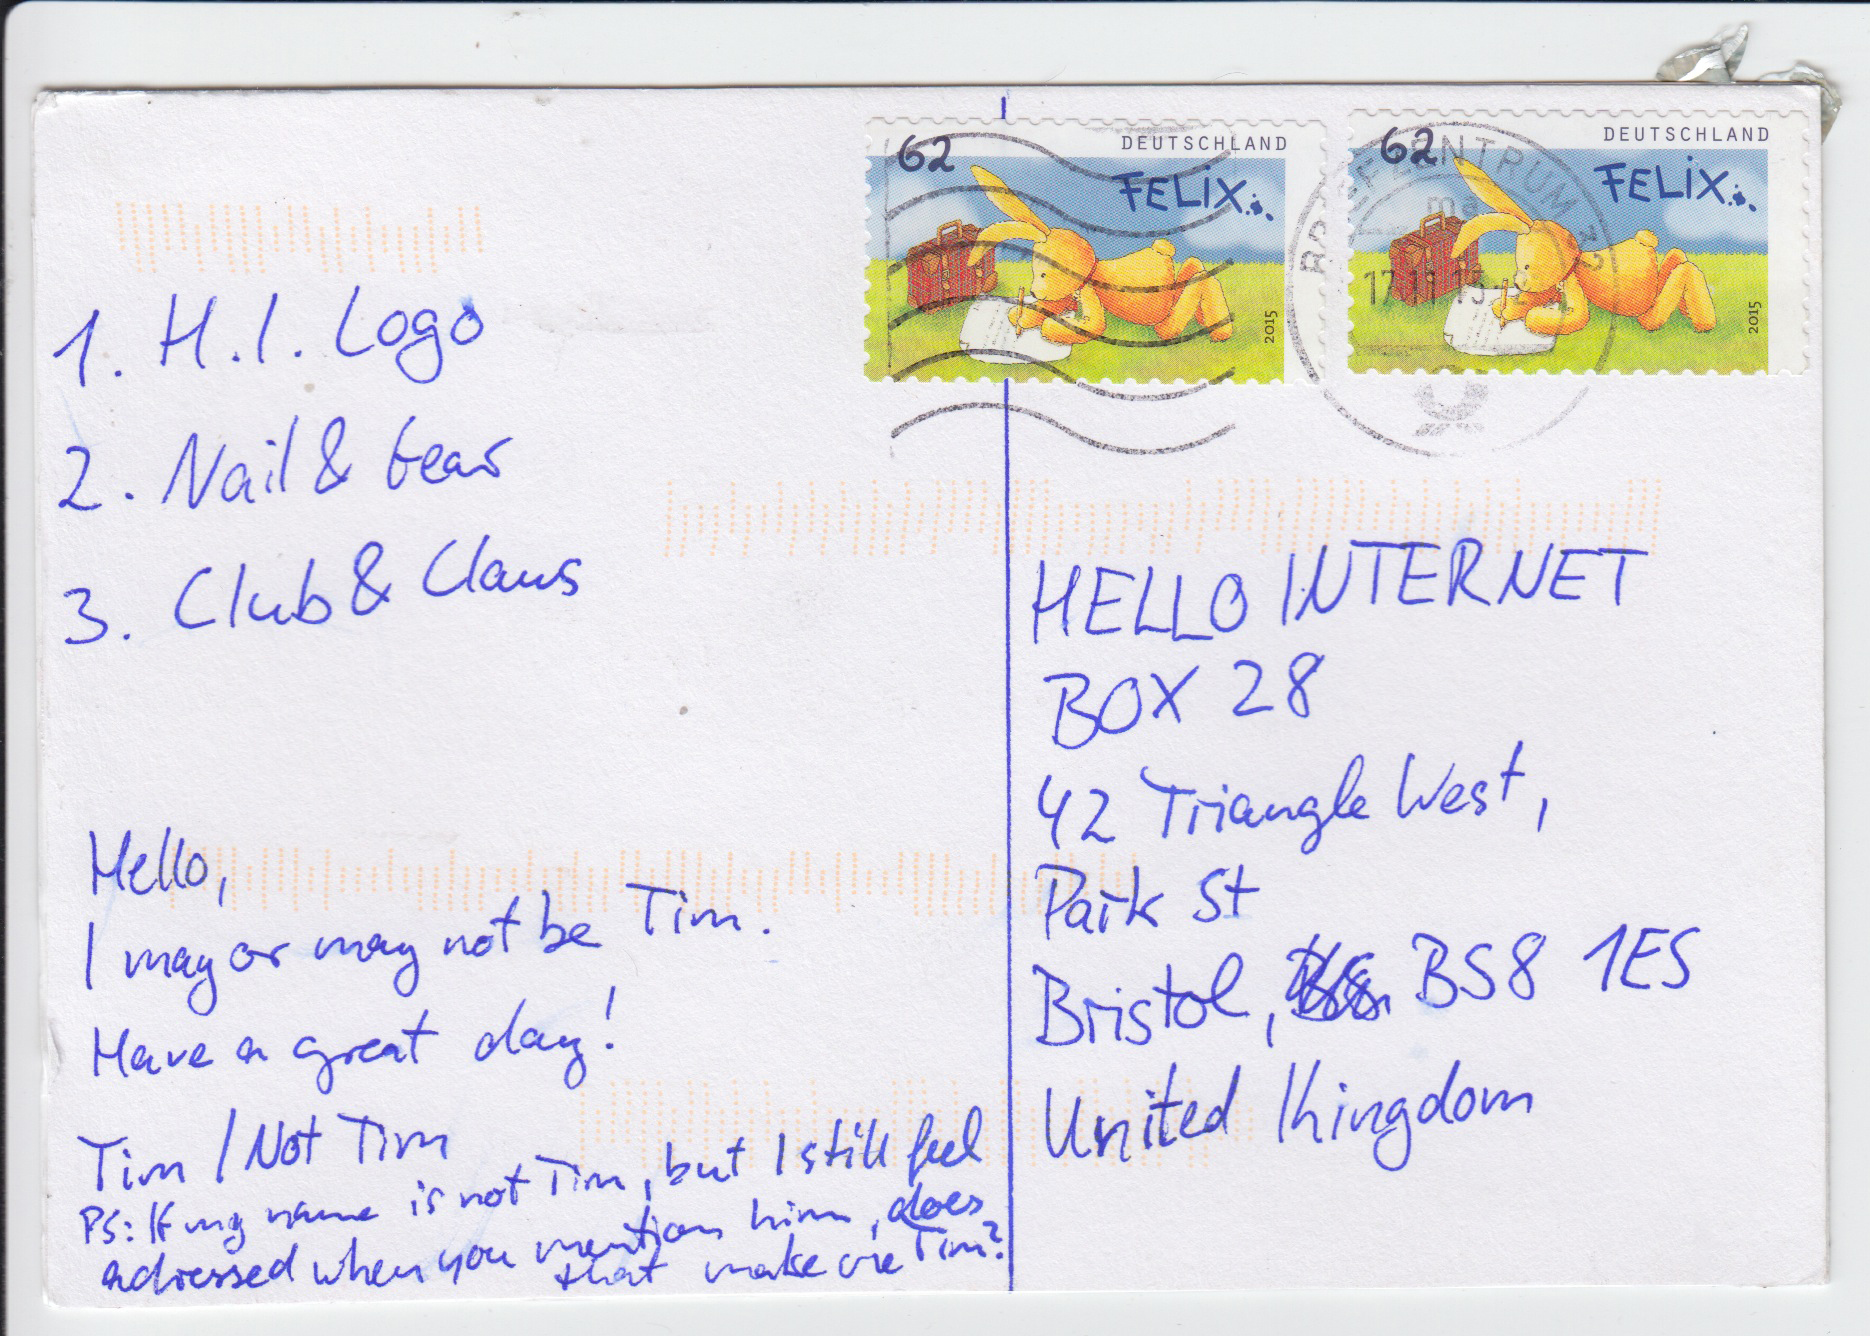 62 DEUTSCHLAND
FELIX
2015
62 DEUTSCHLAND
FELIX
2015
17.11.15
1. H.I. Logo
2. Nail & Gear
3. Club & Claws
Hello,
I may or may not be Tim.
Have a great day!
Tim / Not Tim
PS: If my name is not Tim, but I still feel
adressed when you mention him, does
that make me Tim?
HELLO INTERNET
BOX 28
42 Triangle West,
Park St
Bristol, BS8 1ES
United Kingdom